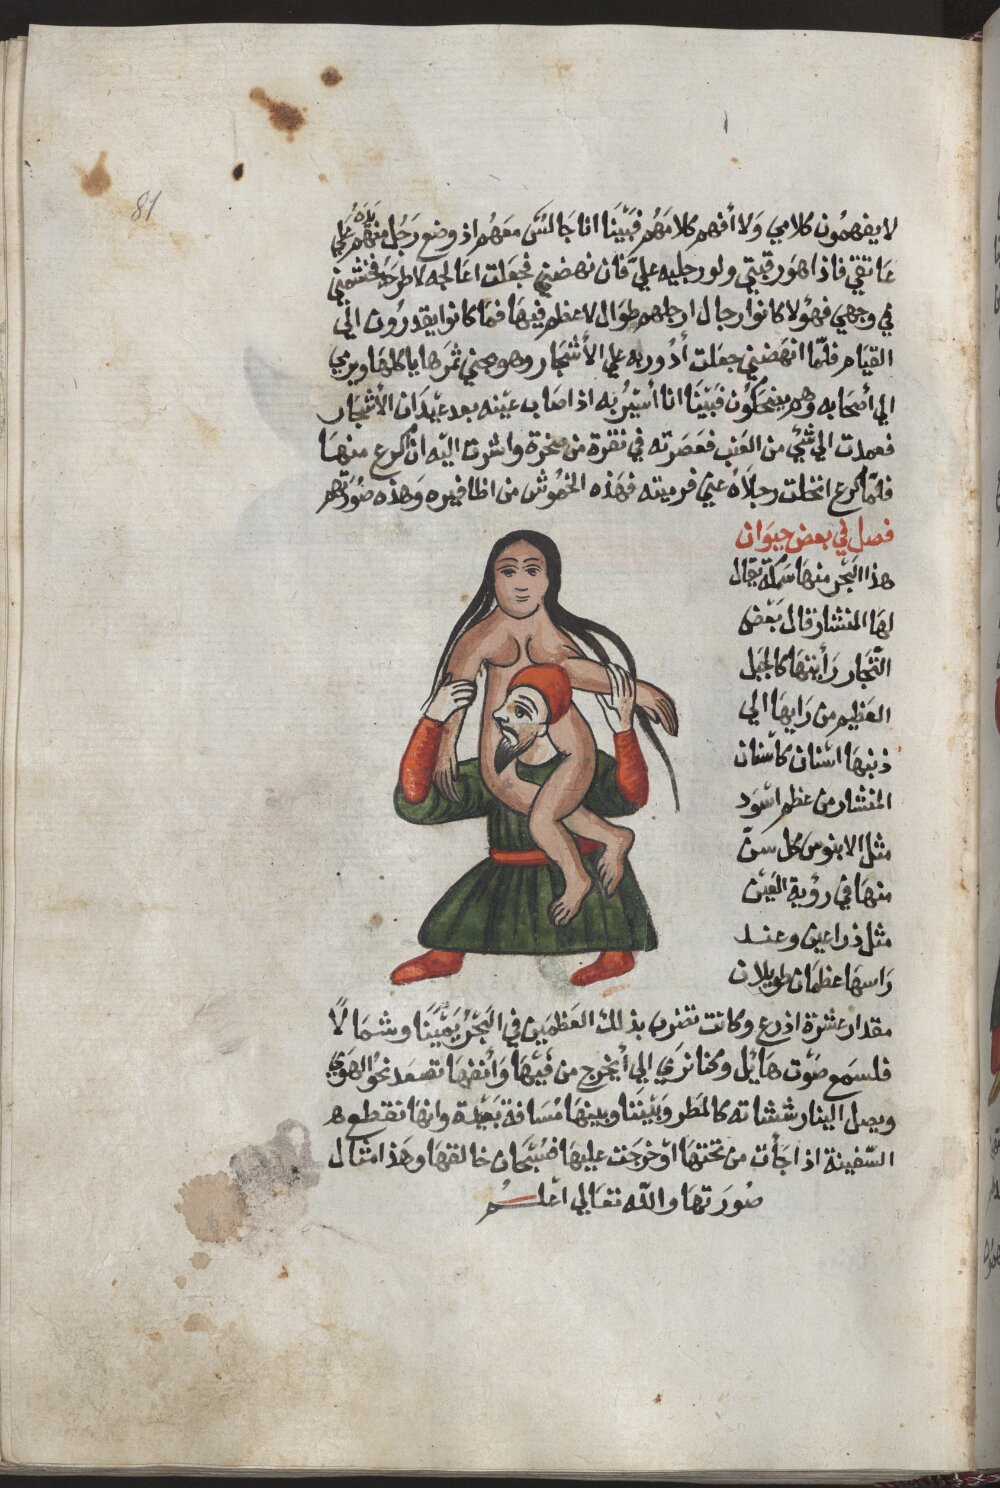 81
لا يفهمون كلامي ولا أفهم كلامهم فبَيْنَا انا جَالسٌ معَهُم اذ وضع رَجُل منهُم يَدَهُ عَلي
عَاتقي فاذا هوَ رقبتي ولوَر جليه عليّ فان نهضني فجعَلت اعَالجه لاطرحَه فخمشني
في وجهي فهؤلا كانوا رجال ارجلهم طوَال لا عظم فيهَا فمَا كانوا يقدرُون الي
القيَام فلمّا انهَضني جعَلت أدُور به علي الأشجَار وهو يجني ثمَرهَا ياكلهَا ويرمي
الي أصحَابه وَهم يضحَكون فبَيْنَا انا أسيْرُ به اذ اصَاب عيْنه بعد عيْدَان الأشجَار
فعمدت الي شئ من العنب فعصَرته في نقرة من صخرة واشرت اليْه انْ اكرع منهَا
فلمّا كرع انحلت رجلَاهُ عني فرميته فهَذه الخمُوش من اظافيره وَهَذه صُورَتهم
فصل في بعض حيوَان
هذا البَحْر منهَا سَمكة يقَال
لهَا المنشار قال بَعْض
التّجَار رَأيتهَا كالجَبل
العَظيم من رَاسهَا الي
ذنبهَا اسْنان كأسْنان
المنشار من عظم اسْوَد
مثل الابنوس كل سنّ
منهَا في رؤية العَيْن
مثل ذراعين وعند
رَاسهَا عظمَان طويلان
مقدار عشرة اذرع وكانت تضرب بذلك العَظمَين في البَحْر يَميْنًا وشمَالًا
فلسمع صَوْت هَايْل وكنا نرَي الي أيخرج من فيْهَا وَأنفهَا تصعَد نحوَ الهَوَي
ويصل الينا رششَاته كالمَطر وَبيْننا وبينهَا مُسَافة بَعيْدة وانهَا تقطع
السّفينة اذا جَأت من تحتهَا اوْ خرَجت عليهَا فسُبْحَان خالقهَا وهَذا مثال
صُورَتهَا والله تعَالي اعْلم